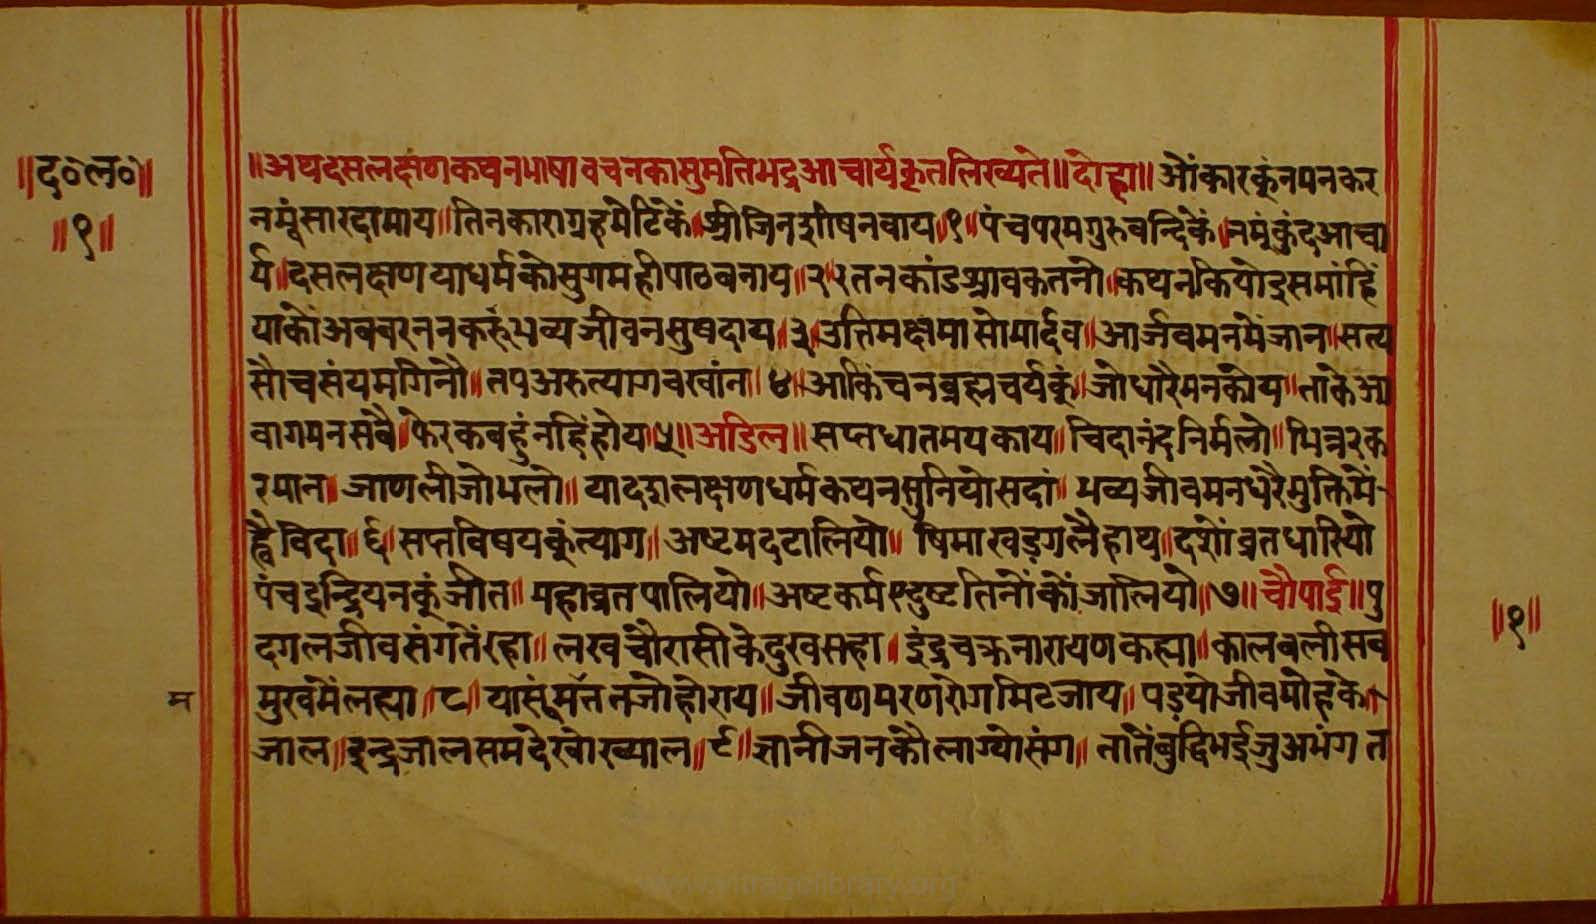 ॥द०ल०॥
॥१॥
॥अथदसलक्षणकथनभाषावचनकासुमतिभद्रआचार्यकृतलिख्यते॥दोहा॥ओंकारकूंनमनकर
नमूंसारदामाय॥तिनकारागग्रहमेटिकें॥श्रीजिनशीषनवाय॥१॥पंचपरमगुरुवन्दिकें॥नमूंकुंदआचा
र्य॥दसलक्षणयाधर्मकोसुगमहीपाठबनाय॥२॥रतनकांडश्रावकतनो॥कथनकियोइसमांहिं
याकोंअक्बरननकरुंभव्यजीवनसुषदाय॥३॥उत्तिमक्षमासोमार्दव॥आर्जवमनमेंजान॥सत्य
सौचसंयमगिनौ॥तपअरुत्यागवखांन॥४॥आकिंचनब्रह्मचर्यकूं॥जोधारैमनकोय॥ताकेआ
वागमनसबै॥फेरकबहुंनहिंहोय॥५॥अडिल॥सप्तधातमयकाय॥चिदानंदनिर्मलो॥भिन्नरक
रमान॥जाणलीजोभलो॥यादशलक्षणधर्मकथनसुनियोसदां॥भव्यजीवमनधरैमुक्तिमें
ह्वैविदा॥६॥सप्तविषयकूंत्याग॥अष्टमदटालियो॥षिमाखड़गलैहाथ॥दशोंव्रतधारियो
पंचइन्द्रियनकूंजीत॥महाव्रतपालियो॥अष्टकर्मदुष्टतिनोंकोंजालियो॥७॥चौपाई॥पु
दगलजीवसंगतेंरहा॥लखचौरासीकेदुखसहा॥इंद्रचक्रनारायणकह्या॥कालबलीसब
मुखमेंलह्या॥८॥यासूंममततजोहोराय॥जीवणमरणरोगमिटजाय॥पड़योजीवमोहके॥
म
जाल॥इन्द्रजालसमदेखोख्याल॥९॥ज्ञानीजनकौलाग्योसंग॥तातेंबुद्धिभईजुअभंगत
॥१॥